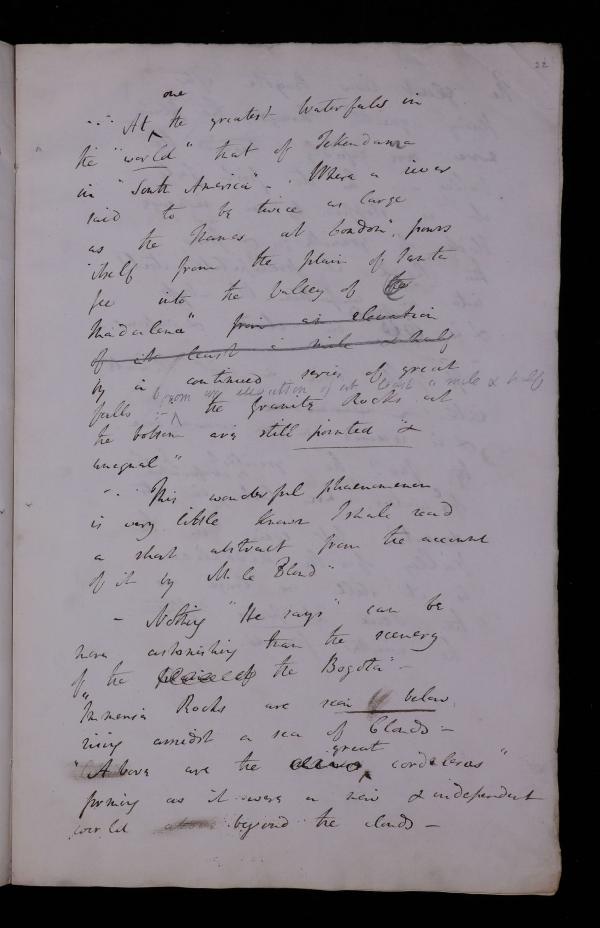 22
one
- "- At the greatest Waterfalls in
the "world" that of Tekendama
in "South America" - . Where a river
said to be twice as large
as the Thames at London", pours
itself from the plain of Santa
fee into the Valley of the
Madalena" from an elevation
of at least a mile & half
by a continued series of great
from an elevation of at least a mile & half
falls - the Granite Rocks at
the bottom are still pointed &
unequal"
- . This wonderful phaenomenon
is very little known I shall read
a short abstract from the account
of it by M. le Blond"
- Nothing "He says" can be
more astonishing than the scenery
of the the Bogota" -
"Immense Rocks are seen below
rising amidst a sea of Clouds -
great
"Above are the cordeleras"
forming as it were a new & independent
world beyond the clouds -